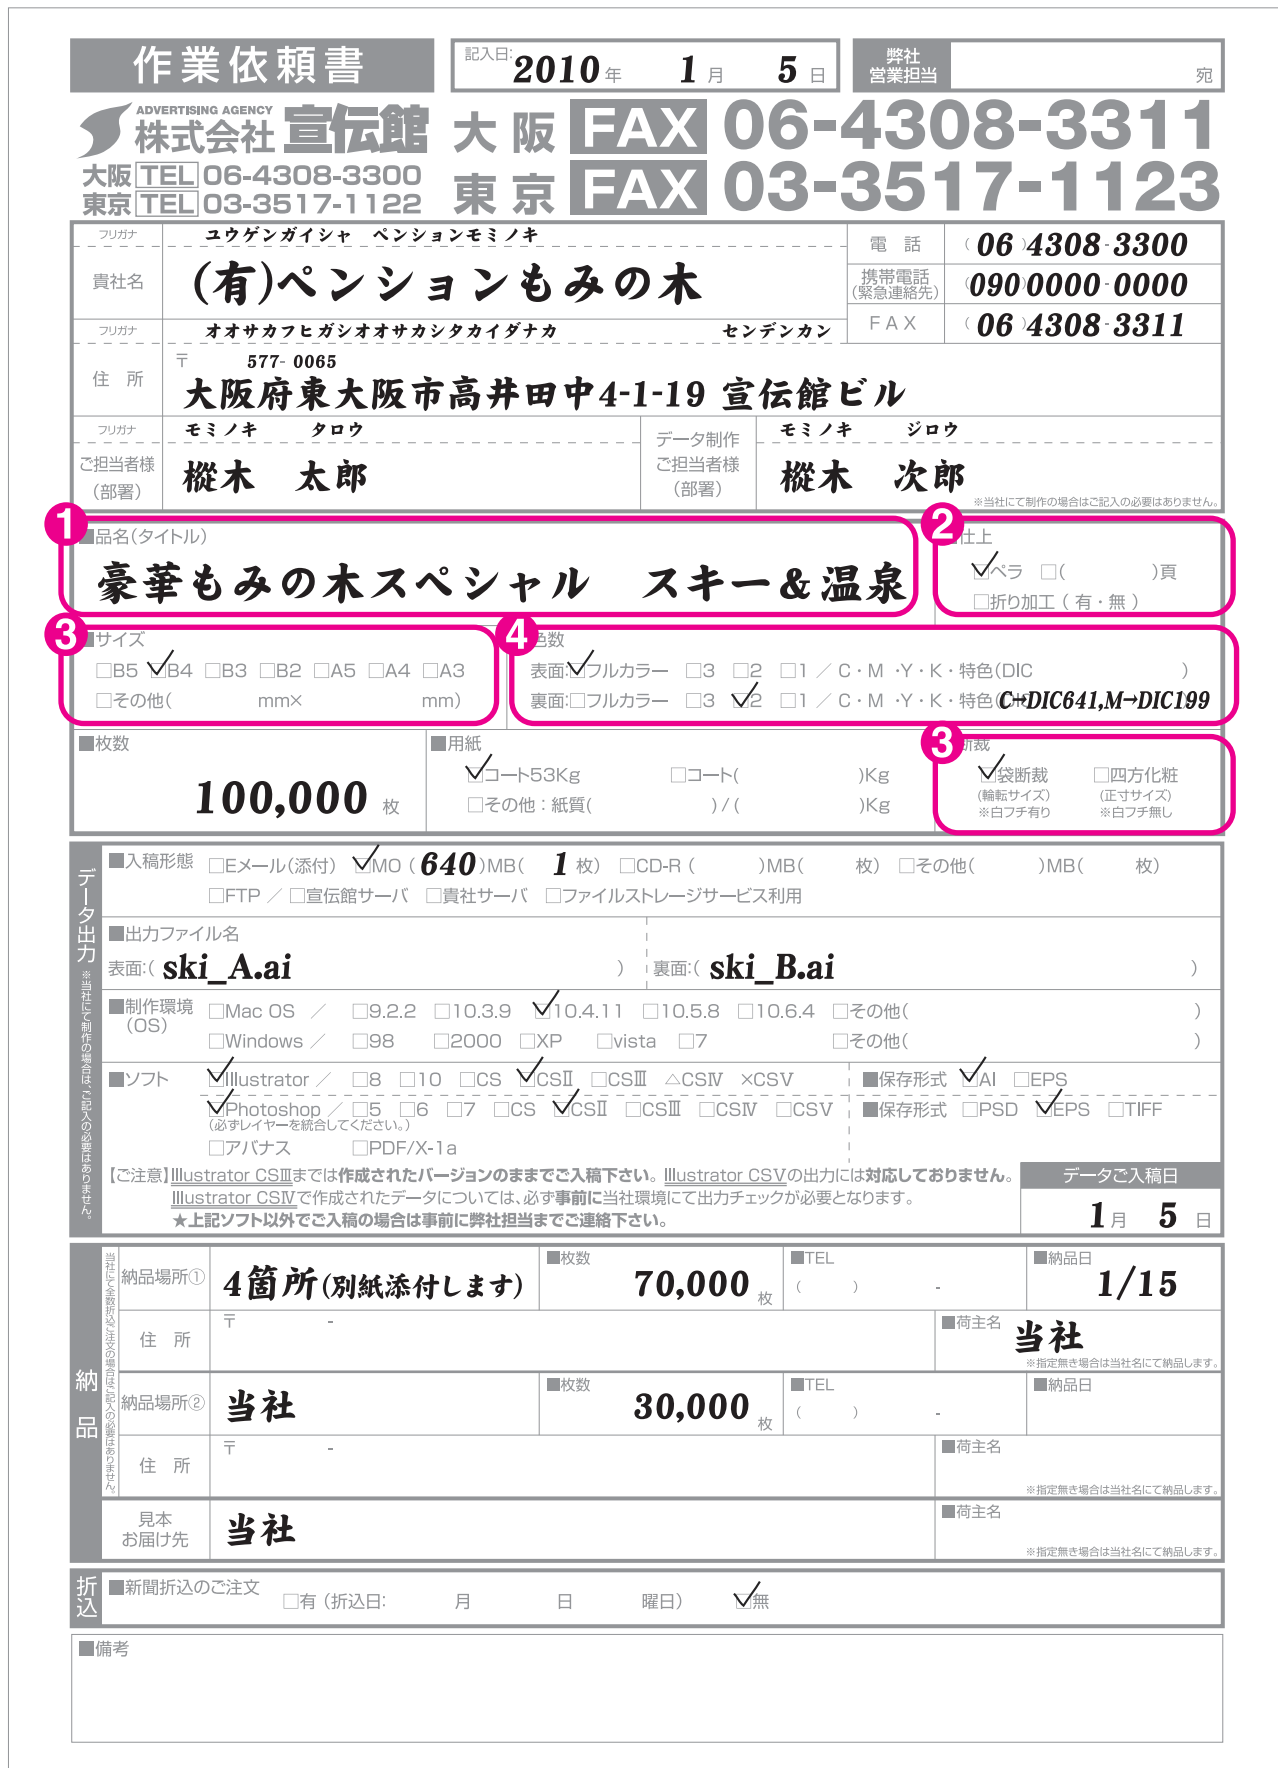 作業依頼書
記入日: 2010年 1月 5日
弊社営業担当 宛
ADVERTISING AGENCY
株式会社 宣伝館
大阪 FAX 06-4308-3311
大阪 TEL 06-4308-3300
東京 FAX 03-3517-1123
東京 TEL 03-3517-1122
フリガナ ユウゲンガイシャ ペンションモミノキ
貴社名 (有)ペンションもみの木
電話 (06)4308-3300
携帯電話(緊急連絡先) (090)0000-0000
FAX (06)4308-3311
フリガナ オオサカフヒガシオオサカシタカイダナカ センデンカン
住所 〒577-0065
大阪府東大阪市高井田中4-1-19 宣伝館ビル
フリガナ モミノキ タロウ
ご担当者様(部署) 樅木 太郎
データ制作ご担当者様(部署)
モミノキ ジロウ
樅木 次郎
※当社にて制作の場合はご記入の必要はありません。
1
■品名(タイトル)
豪華もみの木スペシャル スキー&温泉
2
仕上
□ペラ □( )頁
□折り加工(有・無)
3
■サイズ
□B5 □B4 □B3 □B2 □A5 □A4 □A3
□その他( mm× mm)
4
色数
表面:□フルカラー □3 □2 □1 / C・M・Y・K・特色(DIC )
裏面:□フルカラー □3 □2 □1 / C・M・Y・K・特色(DIC C→DIC641,M→DIC199
■枚数
100,000 枚
■用紙
□コート53Kg □コート( )Kg
□その他:紙質( )/( )Kg
3
断裁
□袋断裁 □四方化粧
(輪転サイズ) (正寸サイズ)
※白フチ有り ※白フチ無し
データ出力 ※当社にて制作の場合は、ご記入の必要はありません。
■入稿形態 □Eメール(添付) □MO(640)MB( 1枚) □CD-R( )MB( 枚) □その他( )MB( 枚)
□FTP / □宣伝館サーバ □貴社サーバ □ファイルストレージサービス利用
■出力ファイル名
表面:( ski_A.ai ) 裏面:( ski_B.ai )
■制作環境(OS) □Mac OS / □9.2.2 □10.3.9 □10.4.11 □10.5.8 □10.6.4 □その他( )
□Windows / □98 □2000 □XP □vista □7 □その他( )
■ソフト □Illustrator / □8 □10 □CS □CSⅡ □CSⅢ △CSⅣ ×CSⅤ ■保存形式 □AI □EPS
□Photoshop / □5 □6 □7 □CS □CSⅡ □CSⅢ □CSⅣ □CSⅤ ■保存形式 □PSD □EPS □TIFF
(必ずレイヤーを統合してください。)
□アバナス □PDF/X-1a
【ご注意】Illustrator CSⅢまでは作成されたバージョンのままでご入稿下さい。Illustrator CSⅤの出力には対応しておりません。
Illustrator CSⅣで作成されたデータについては、必ず事前に当社環境にて出力チェックが必要となります。
★上記ソフト以外でご入稿の場合は事前に弊社担当までご連絡下さい。
データご入稿日
1月 5日
納品
当社にて全数折込ご注文の場合はご記入の必要はありません。
納品場所① 4箇所(別紙添付します) ■枚数 70,000枚 ■TEL ( ) - ■納品日 1/15
住所 〒 - ■荷主名 当社
※指定無き場合は当社名にて納品します。
納品場所② 当社 ■枚数 30,000枚 ■TEL ( ) - ■納品日
住所 〒 - ■荷主名
※指定無き場合は当社名にて納品します。
見本お届け先 当社 ■荷主名
※指定無き場合は当社名にて納品します。
折込 ■新聞折込のご注文 □有(折込日: 月 日 曜日) □無
■備考